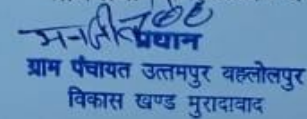 मनजीत
प्रधान
ग्राम पंचायत उत्तमपुर बहलोलपुर
विकास खण्ड मुरादाबाद